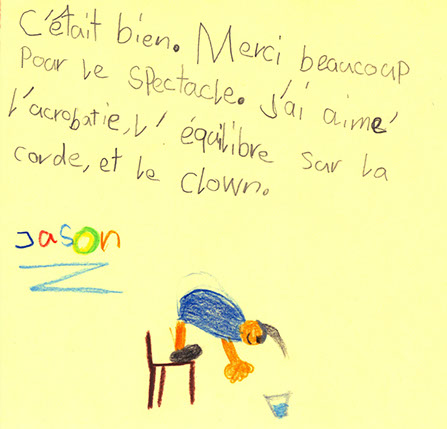 C'était bien. Merci beaucoup
pour le spectacle. J'ai aimé
l'acrobatie, l'équilibre sur la
corde, et le clown.
Jason